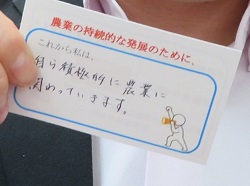 農業の持続的な発展のために、
これから私は、
自ら積極的に農業に
関わっていきます。